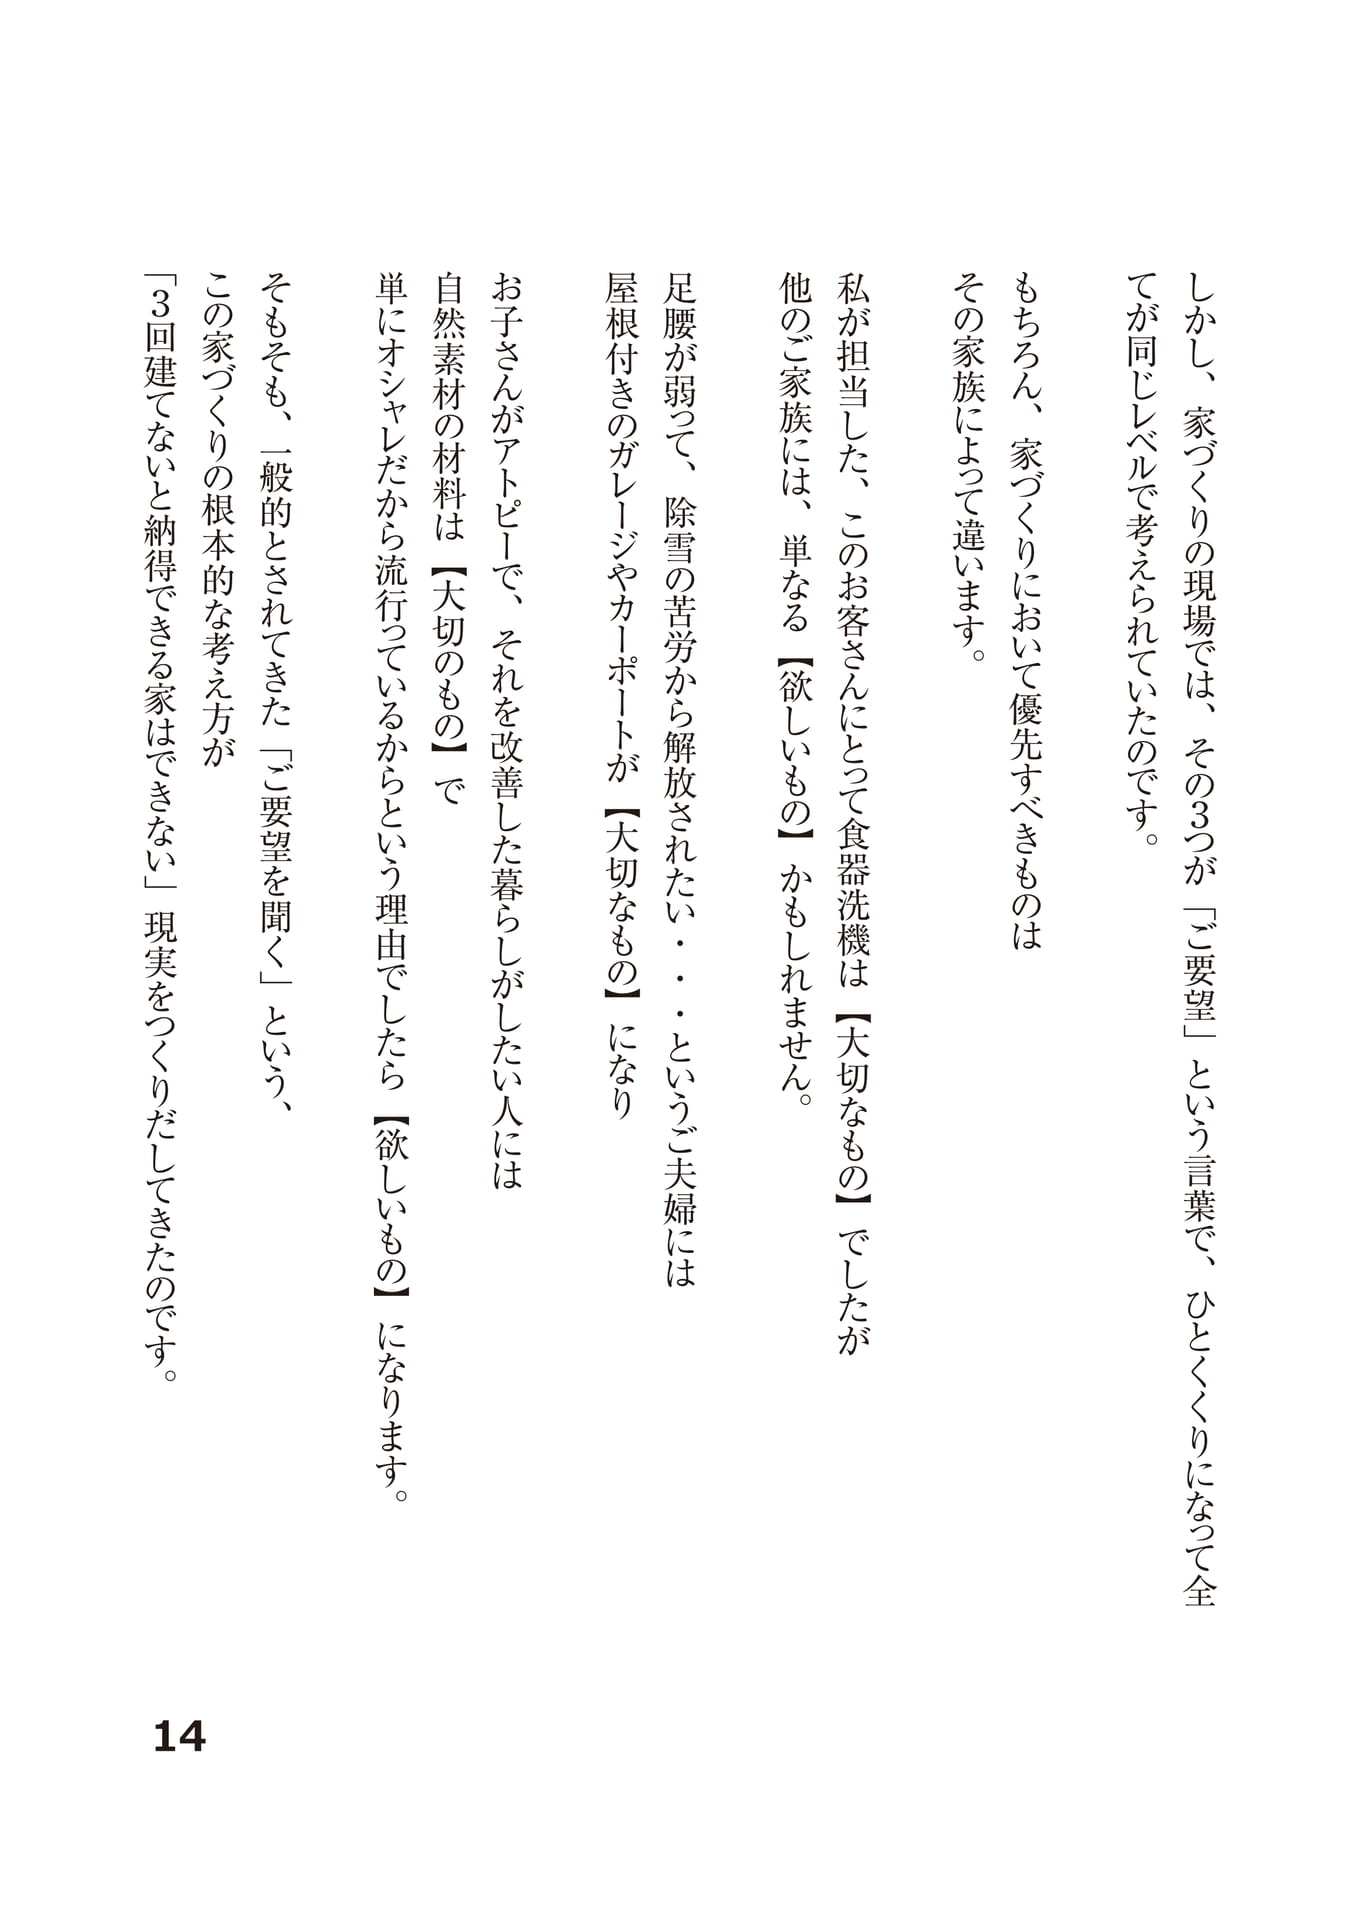 しかし、家づくりの現場では、その３つが「ご要望」という言葉で、ひとくくりになって全
てが同じレベルで考えられていたのです。
もちろん、家づくりにおいて優先すべきものは
その家族によって違います。
私が担当した、このお客さんにとって食器洗機は【大切なもの】でしたが
他のご家族には、単なる【欲しいもの】かもしれません。
足腰が弱って、除雪の苦労から解放されたい・・・というご夫婦には
屋根付きのガレージやカーポートが【大切なもの】になり
お子さんがアトピーで、それを改善した暮らしがしたい人には
自然素材の材料は【大切のもの】で
単にオシャレだから流行っているからという理由でしたら【欲しいもの】になります。
そもそも、一般的とされてきた「ご要望を聞く」という、
この家づくりの根本的な考え方が
「３回建てないと納得できる家はできない」現実をつくりだしてきたのです。
14